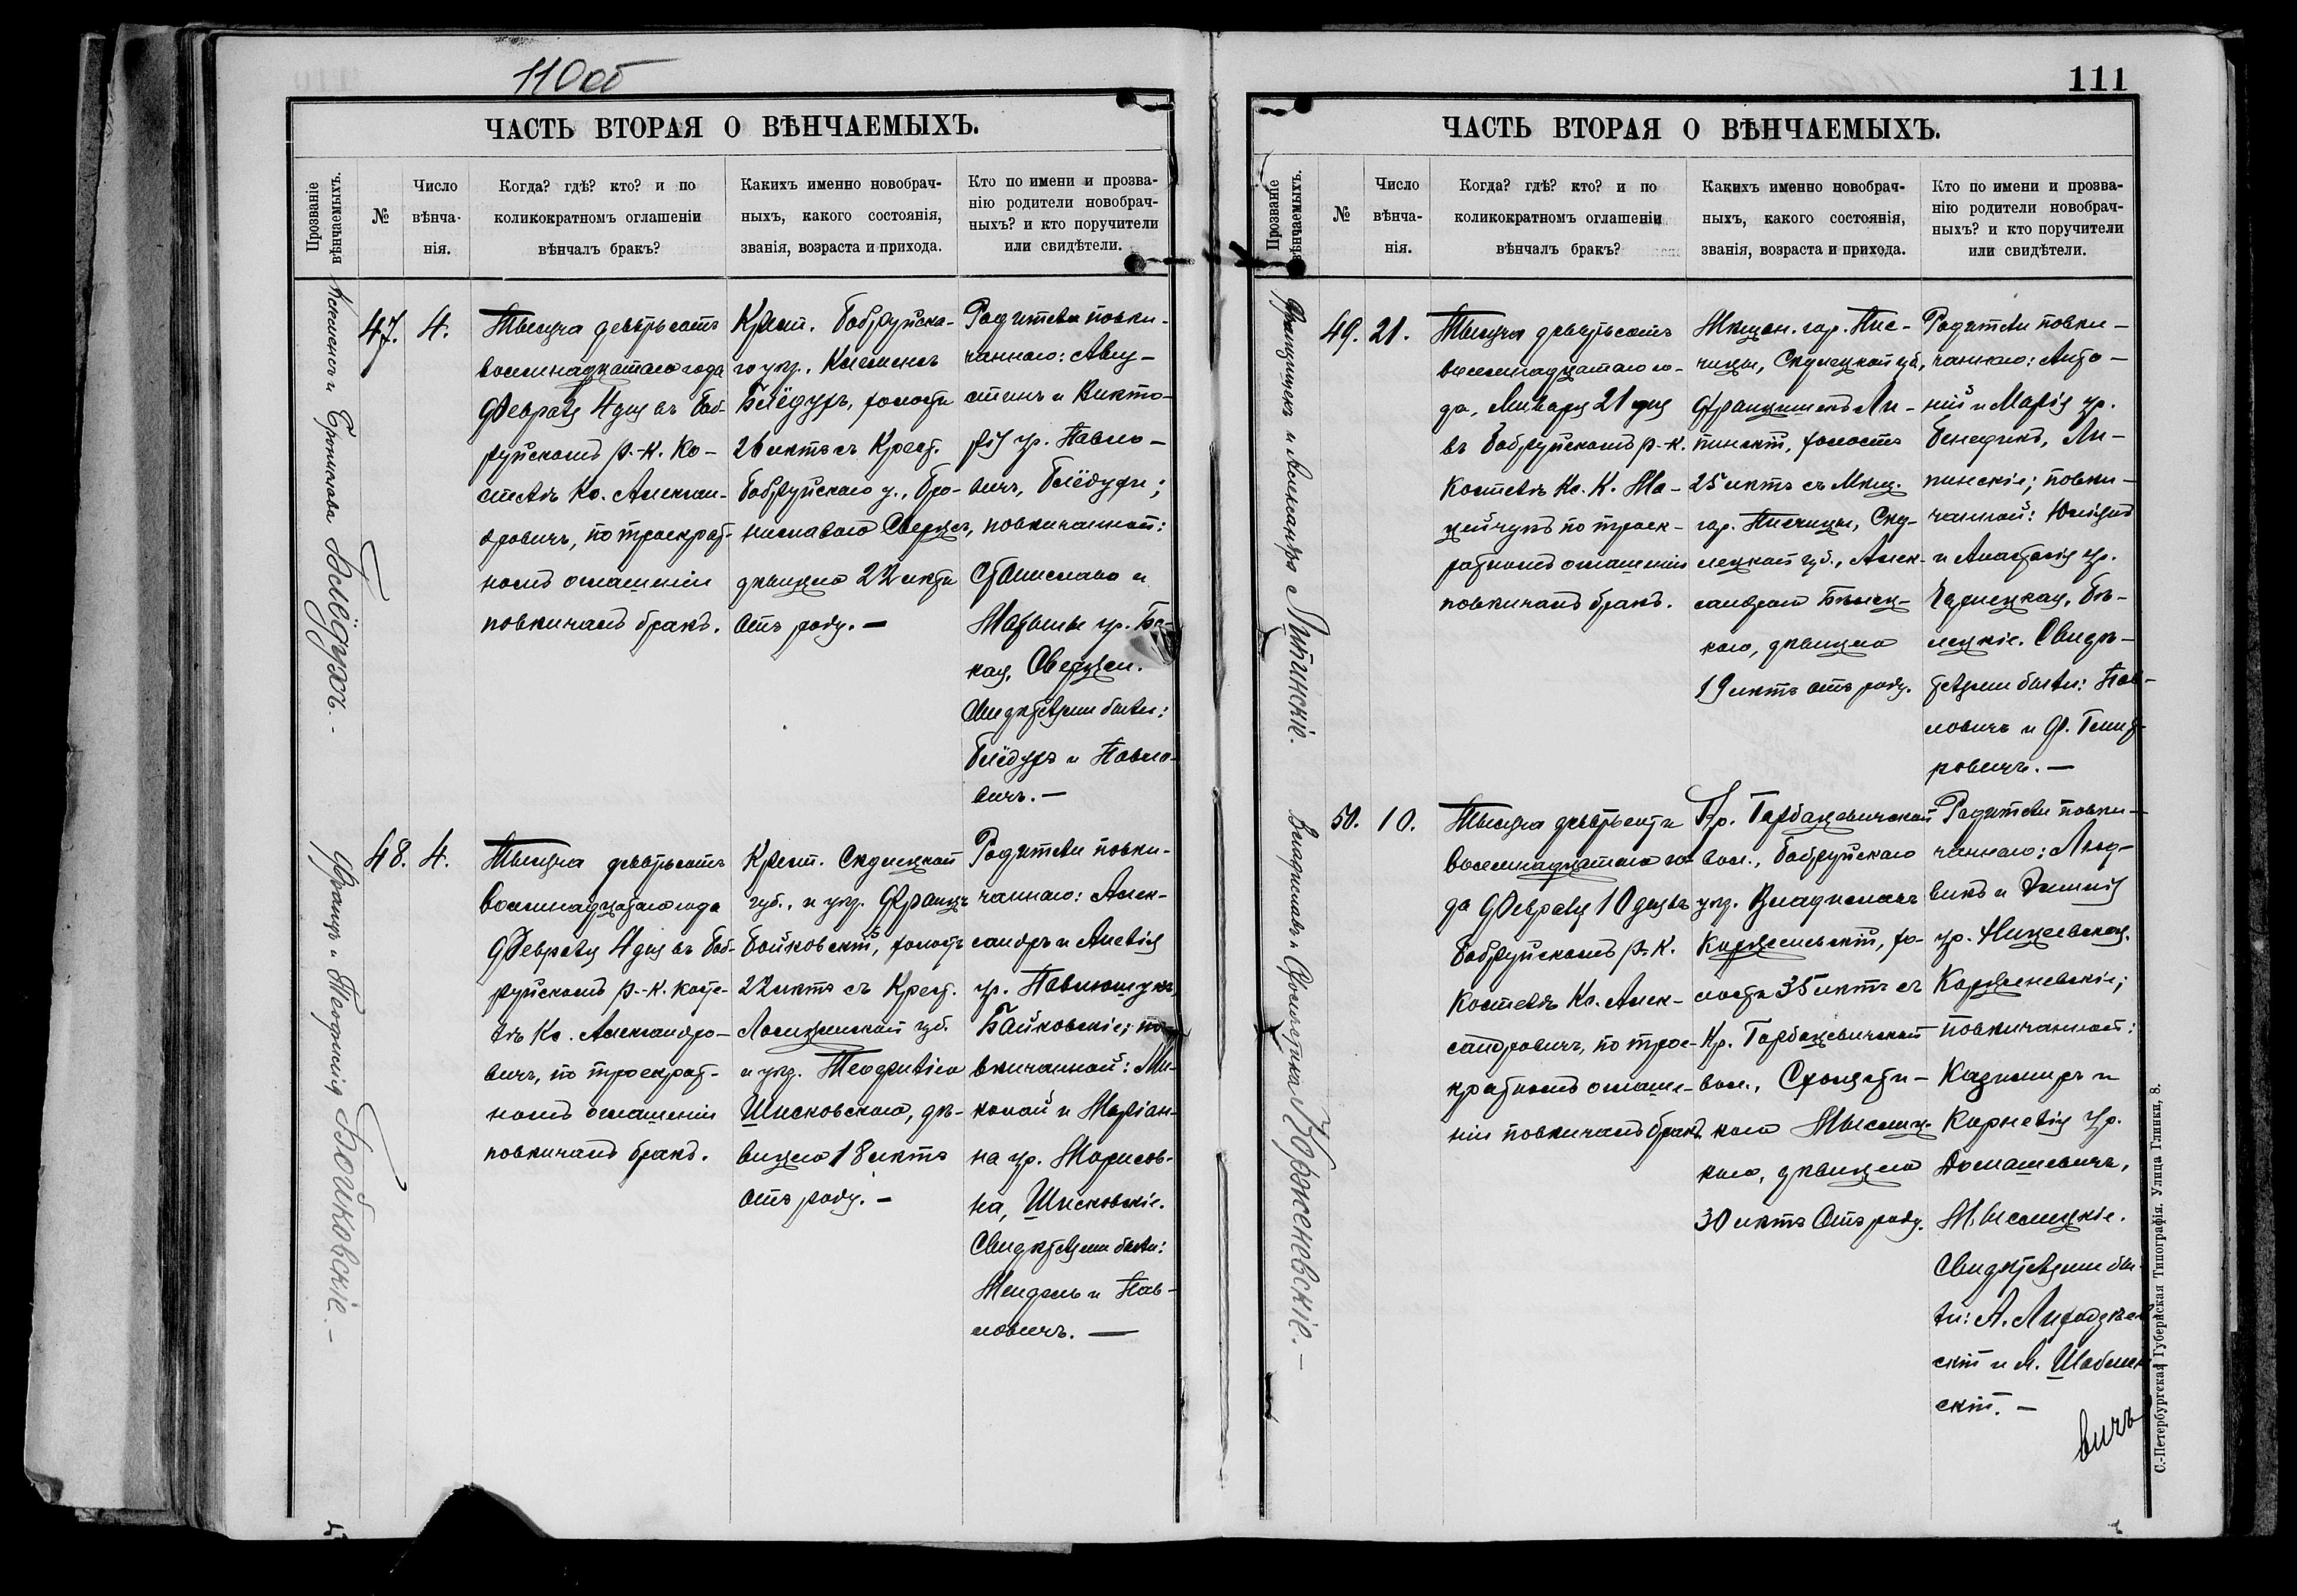 110об
ЧАСТЬ ВТОРАЯ О ВѢНЧАЕМЫХЪ.
Прозваніе
вѣнчаемыхъ.
№
Число
вѣнча-
нія.
Когда? гдѣ? кто? и по
коликократномъ оглашеніи
вѣнчалъ бракъ?
Какихъ именно новобрач-
ныхъ, какого состоянія,
званія, возраста и прихода.
Кто по имени и прозва-
нію родители новобрач-
ныхъ? и кто поручители
или свидѣтели.
и Бронислава
47.
4.
Тысяча девятьсотъ
восемнадцатаго года
Февраля 4 дня въ Боб-
руйскомъ р.-к. Ко-
стелѣ Кс. Алексан-
дровичъ, по троекрат-
номъ оглашеніи
повѣнчалъ бракъ.
Крест. Бобруйска-
го уѣз., Клеменсъ
холостъ
26 лѣтъ съ Крест.
Бобруйскаго у., Бро-
ниславою
дѣвицею 22 лѣтъ
отъ роду. —
Родители повѣн-
чаннаго: Авгу-
стинъ и Викто-
рія ур. Павло-
вичъ,
повѣнчанной:
Станиславъ и
Свидѣтелями были:
и Павло-
вичъ. —
Францъ и Теофилія Бойковскіе. —
48.
4.
Тысяча девятьсотъ
восемнадцатаго года
Февраля 4 дня въ Боб-
руйскомъ р.-к. косте-
лѣ Кс. Александро-
вичъ, по троекрат-
номъ оглашеніи
повѣнчалъ бракъ.
Крест. Сѣдлецкой
губ., и уѣз. Францъ
Бойковскій, холостъ
22 лѣтъ съ Крест.
Ломжинской губ.
и уѣз. Теофилією
дѣ-
вицею 18 лѣтъ
отъ роду. —
Родители повѣн-
чаннаго: Алек-
сандръ и
ур.
Бойковскіе; по-
вѣнчанной: Ми-
колай и Маріан-
на ур.
Свидѣтелями были:
и Пав-
ловичъ. —
111
ЧАСТЬ ВТОРАЯ О ВѢНЧАЕМЫХЪ.
Прозваніе
вѣнчаемыхъ.
№
Число
вѣнча-
нія.
Когда? гдѣ? кто? и по
коликократномъ оглашеніи
вѣнчалъ бракъ?
Какихъ именно новобрач-
ныхъ, какого состоянія,
званія, возраста и прихода.
Кто по имени и прозва-
нію родители новобрач-
ныхъ? и кто поручители
или свидѣтели.
Францишекъ и Александра Липинскіе.
49.
21.
Тысяча девятьсотъ
восемнадцатаго го-
да, Января 21 дня
въ Бобруйскомъ р.-к.
Костелѣ Кс. К. Ма-
цейчукъ по троек-
ратномъ оглашеніи
повѣнчалъ бракъ.
Мѣщан. гор.
Сѣдлецкой губ.,
Францишекъ Ли-
пинскій, холостъ
25 лѣтъ съ Мѣщ.
гор. Сѣд-
лецкой губ., Алек-
сандрою Бѣлец-
кою, дѣвицею
19 лѣтъ отъ роду.
Родители повѣн-
чаннаго: Анто-
ній и Марія ур.
Ли-
пинскіе; повѣн-
чанной:
и Анастасія ур.
Бѣ-
лецкіе. Свидѣ-
телями были: Пав-
ловичъ и
ровичъ. —
Владиславъ и Корженевскіе. —
50.
10.
Тысяча девятьсотъ
восемнадцатаго го-
да Февраля 10 дня въ
Бобруйскомъ р.-К.
Костелѣ Кс. Алек-
сандровичъ, по трое-
кратномъ оглаше-
ніи повѣнчалъ бракъ
Кр. Горбацевичской
вол., Бобруйскаго
уѣз. Владиславъ
Корженевскій, хо-
лостъ 35 лѣтъ съ
Кр. Горбацевичской
вол.,
кою Мыслиц-
кою, дѣвицею
30 лѣтъ отъ роду.
Родители повѣн-
чаннаго: Люд-
викъ и Эмилія
ур.
Корженевскіе;
повѣнчанной:
Казимиръ и
Корнелія ур.
Домашевичъ,
Мыслицкіе.
Свидѣтелями бы-
ли: А.
скій и М.
скій. —
вичъ
С.-Петербургская Губернская Типографія. Улица Глинки, 8.